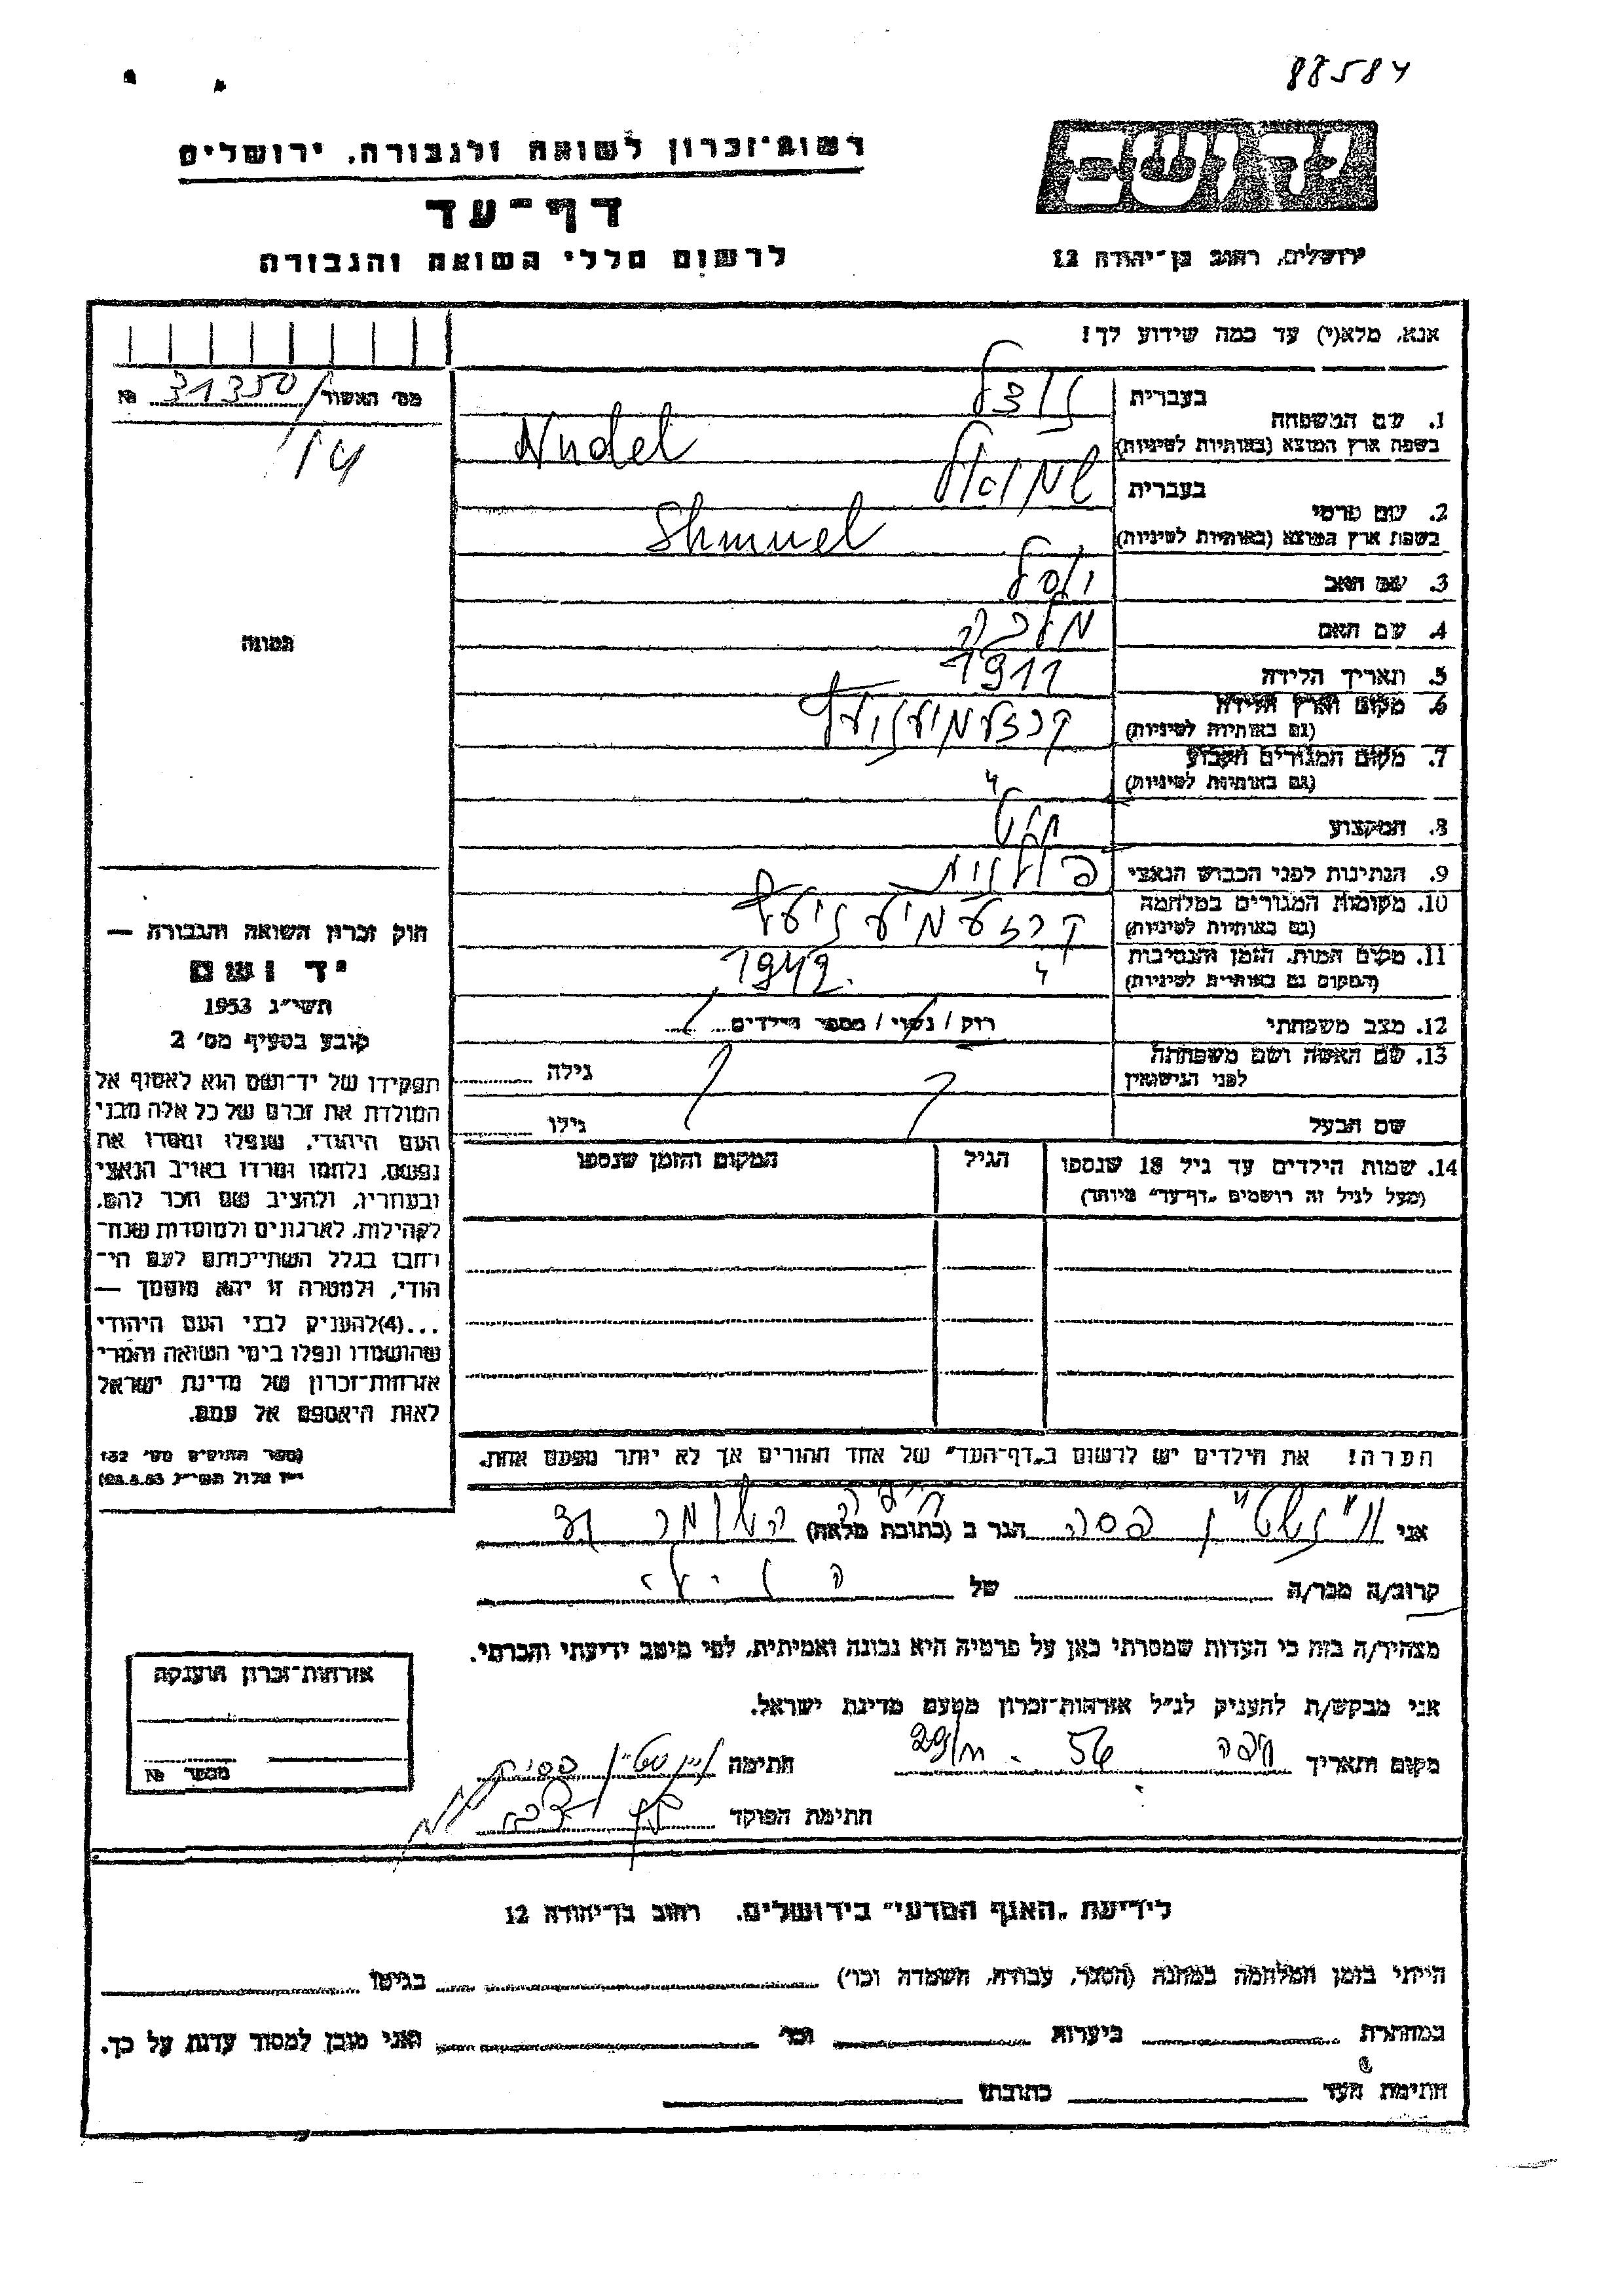 88584
רשות-זכרון לשואה ולגבורה, ירושלים
יד ושם
דף-עד
לרשום חללי השואה והגבורה
ירושלים, רחוב בן-יהודה 12
אנא, מלא(י) עד כמה שידוע לך!
מס' האשור 31350/ №
14
1. שם המשפחה
בעברית נודל
בשפת ארץ המוצא (באותיות לטיניות) Nudel
2. שם פרטי
בעברית שמואל
בשפת ארץ המוצא (באותיות לטיניות) Shmuel
3. שם האב יוסל
4. שם האם מלכה
5. תאריך הלידה 1911
6. מקום וארץ הלידה
(גם באותיות לטיניות) קרzעמיעניעץ
7. מקום המגורים הקבוע
(גם באותיות לטיניות) "
8. המקצוע
9. הנתינות לפני הכבוש הנאצי פולנית
10. מקומות המגורים במלחמה
(גם באותיות לטיניות)
11. מקום המות, הזמן והנסיבות
(המקום גם באותיות לטיניות) " 1942.
12. מצב משפחתי רווק / נשוי / מספר הילדים
13. שם האשה ושם משפחתה
לפני הנישואין גילה
שם הבעל גילו
14. שמות הילדים עד גיל 18 שנספו
(מעל לגיל זה רושמים "דף-עד" מיוחד)
הגיל
המקום והזמן שנספו
הערה! את הילדים יש לרשום ב"דף-העד" של אחד ההורים אך לא יותר מפעם אחת.
תמונה
חוק זכרון השואה והגבורה —
יד ושם
תשי"ג 1953
קובע בסעיף מס' 2
תפקידו של יד-ושם הוא לאסוף אל
המולדת את זכרם של כל אלה מבני
העם היהודי, שנפלו ומסרו את
נפשם, נלחמו ומרדו באויב הנאצי
ובעוזריו, ולהציב שם וזכר להם,
לקהילות, לארגונים ולמוסדות שנח־
רבו בגלל השתייכותם לעם הי־
הודי, ולמטרה זו יהא מוסמך —
...(4)להעניק לבני העם היהודי
שהושמדו ונפלו בימי השואה והמרי
אזרחות-זכרון של מדינת ישראל
לאות היאספם אל עמם.
(ספר החוקים מס' 132
י"ז אלול תשי"ג 28.8.53)
אני ויינשטיין פסיה הגר ב (כתובת מלאה) חיפה
קרוב/ה מכר/ה של
מצהיר/ה בזה כי העדות שמסרתי כאן על פרטיה היא נכונה ואמיתית, לפי מיטב ידיעתי והכרתי.
אני מבקש/ת להעניק לנ"ל אזרחות-זכרון מטעם מדינת ישראל.
מקום ותאריך חיפה 56 חתימה ויינשטיין פסיה
חתימת הפוקד
אזרחות-זכרון הוענקה
מספר №
לידיעת "האגף המדעי" בירושלים, רחוב בן-יהודה 12
הייתי בזמן המלחמה במחנה (הסגר, עבודה, השמדה וכו') בגיטו
במחתרת ביערות וכו' ואני מוכן למסור עדות על כך.
חתימת העד כתובתו